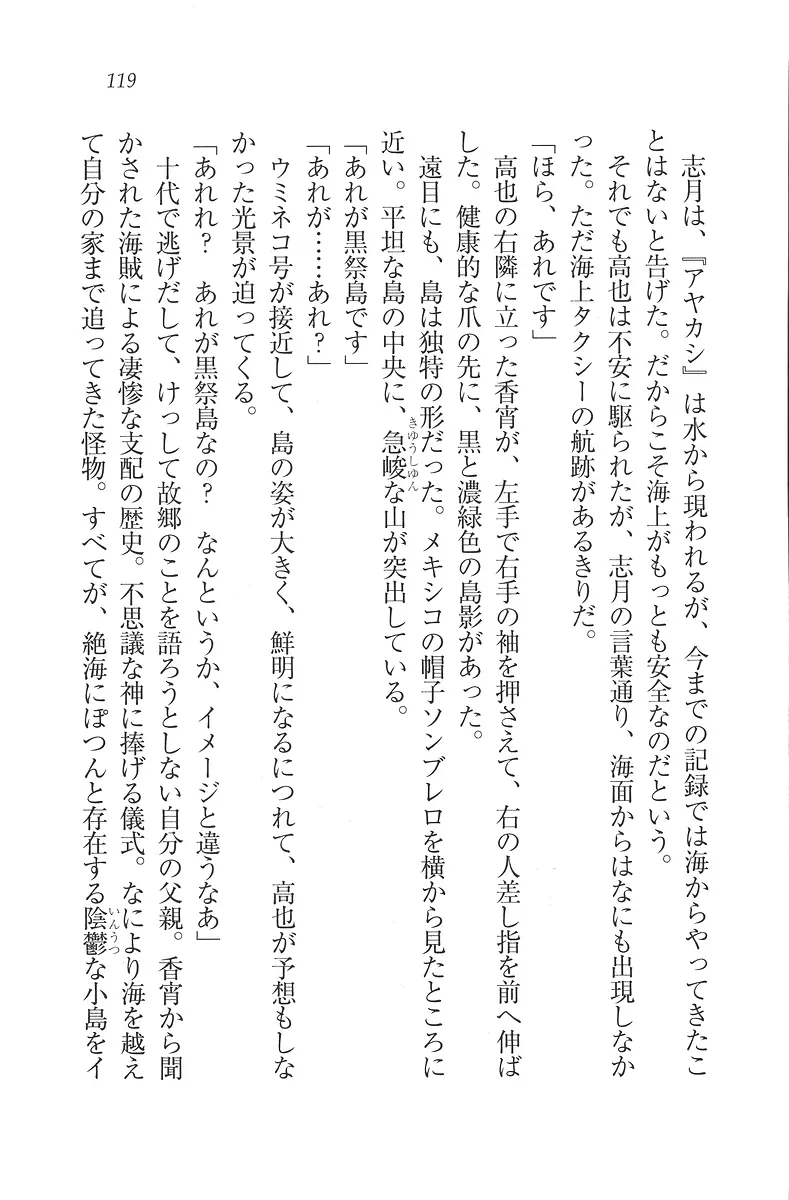 119
志月は、『アヤカシ』は水から現われるが、今までの記録では海からやってきたこ
とはないと告げた。だからこそ海上がもっとも安全なのだという。
それでも高也は不安に駆られたが、志月の言葉通り、海面からはなにも出現しなか
った。ただ海上タクシーの航跡があるきりだ。
「ほら、あれです」
高也の右隣に立った香宵が、左手で右手の袖を押さえて、右の人差し指を前へ伸ば
した。健康的な爪の先に、黒と濃緑色の島影があった。
遠目にも、島は独特の形だった。メキシコの帽子ソンブレロを横から見たところに
近い。平坦な島の中央に、急峻な山が突出している。
きゆうしゆん
「あれが黒祭島です」
「あれが……あれ？」
ウミネコ号が接近して、島の姿が大きく、鮮明になるにつれて、高也が予想もしな
かった光景が迫ってくる。
「あれれ？　あれが黒祭島なの？　なんというか、イメージと違うなあ」
十代で逃げだして、けっして故郷のことを語ろうとしない自分の父親。香宵から聞
かされた海賊による凄惨な支配の歴史。不思議な神に捧げる儀式。なにより海を越え
て自分の家まで追ってきた怪物。すべてが、絶海にぽつんと存在する陰鬱な小島をイ
いんうつ